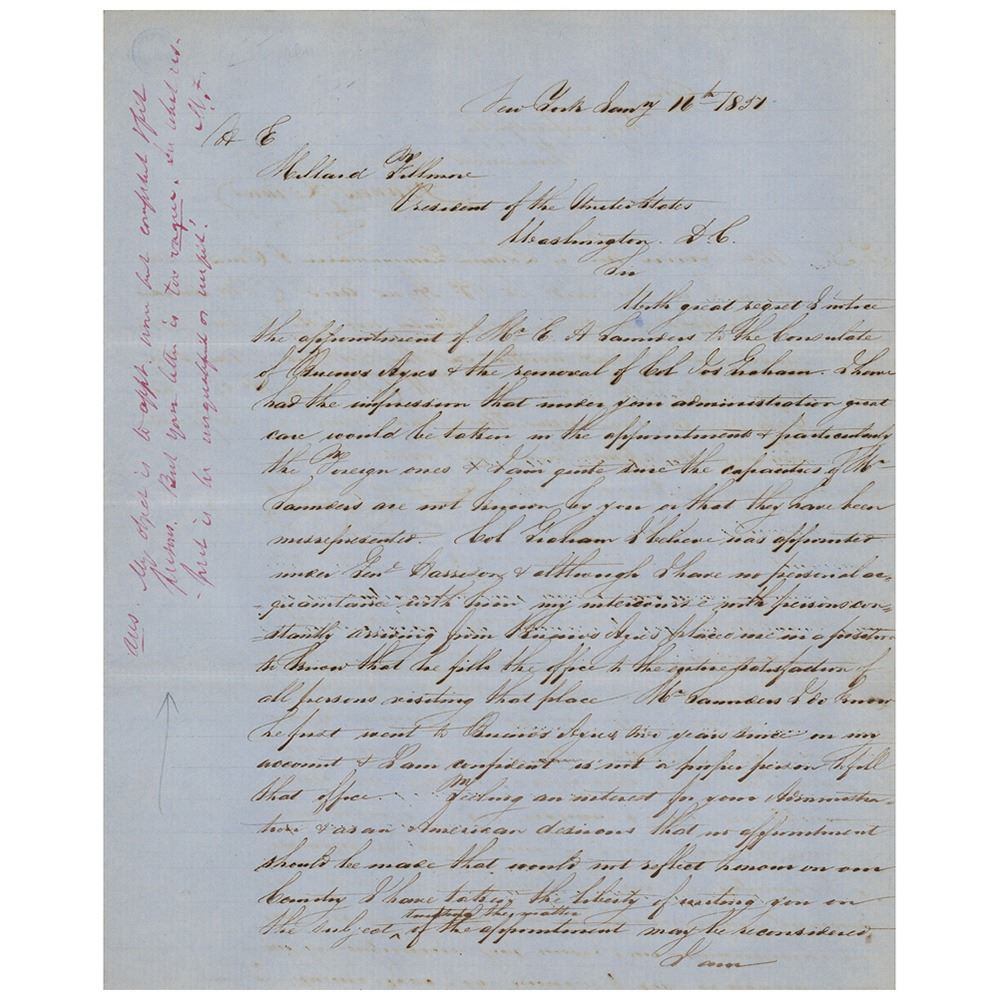 New York Jany 16th 1851
H E
Millard Fillmore
President of the United States
Washington. D.C.
Sir
With great regret I notice
the appointment of Mr E. A Saunders to the Consulate
of Buenos Ayres & the removal of Col Jos Graham. I have
had the impression that under your administration great
care would be taken in the appointments & particularly
the Foreign ones & I am quite sure the capacities of Mr
Saunders are not known by you or that they have been
misrepresented. Col Graham I believe was appointed
under Genl Harrison & although I have no personal ac-
-quaintance with him my intercourse with persons con-
-stantly arriving from Buenos Ayres places me in a position
to know that he fills the office to the entire satisfaction of
all persons visiting that place Mr Saunders I do know
he first went to Buenos Ayres two years since on my
account & I am confident is not a proper person to fill
that office. Feeling an interest for your Administra-
tion & as an American desirous that no appointment
should be made that would not reflect honor on our
Country I have taken the liberty of writing you on
the subject trusting the matter of the appointment may be reconsidered
I am
Ans. My object is to appt. none but competent & fit
persons. But your letter is too vague. In what res-
-pect is he unqualified or unfit?
M. F.